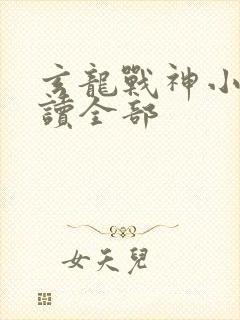 玄龍戰神小
讀全部
女天兒